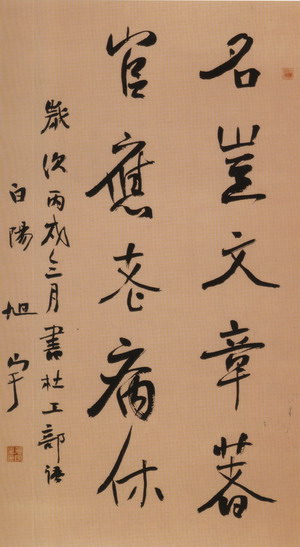 名豈文章著
官應老病休
歲次丙戌三月書杜工部語
白陽 旭宇